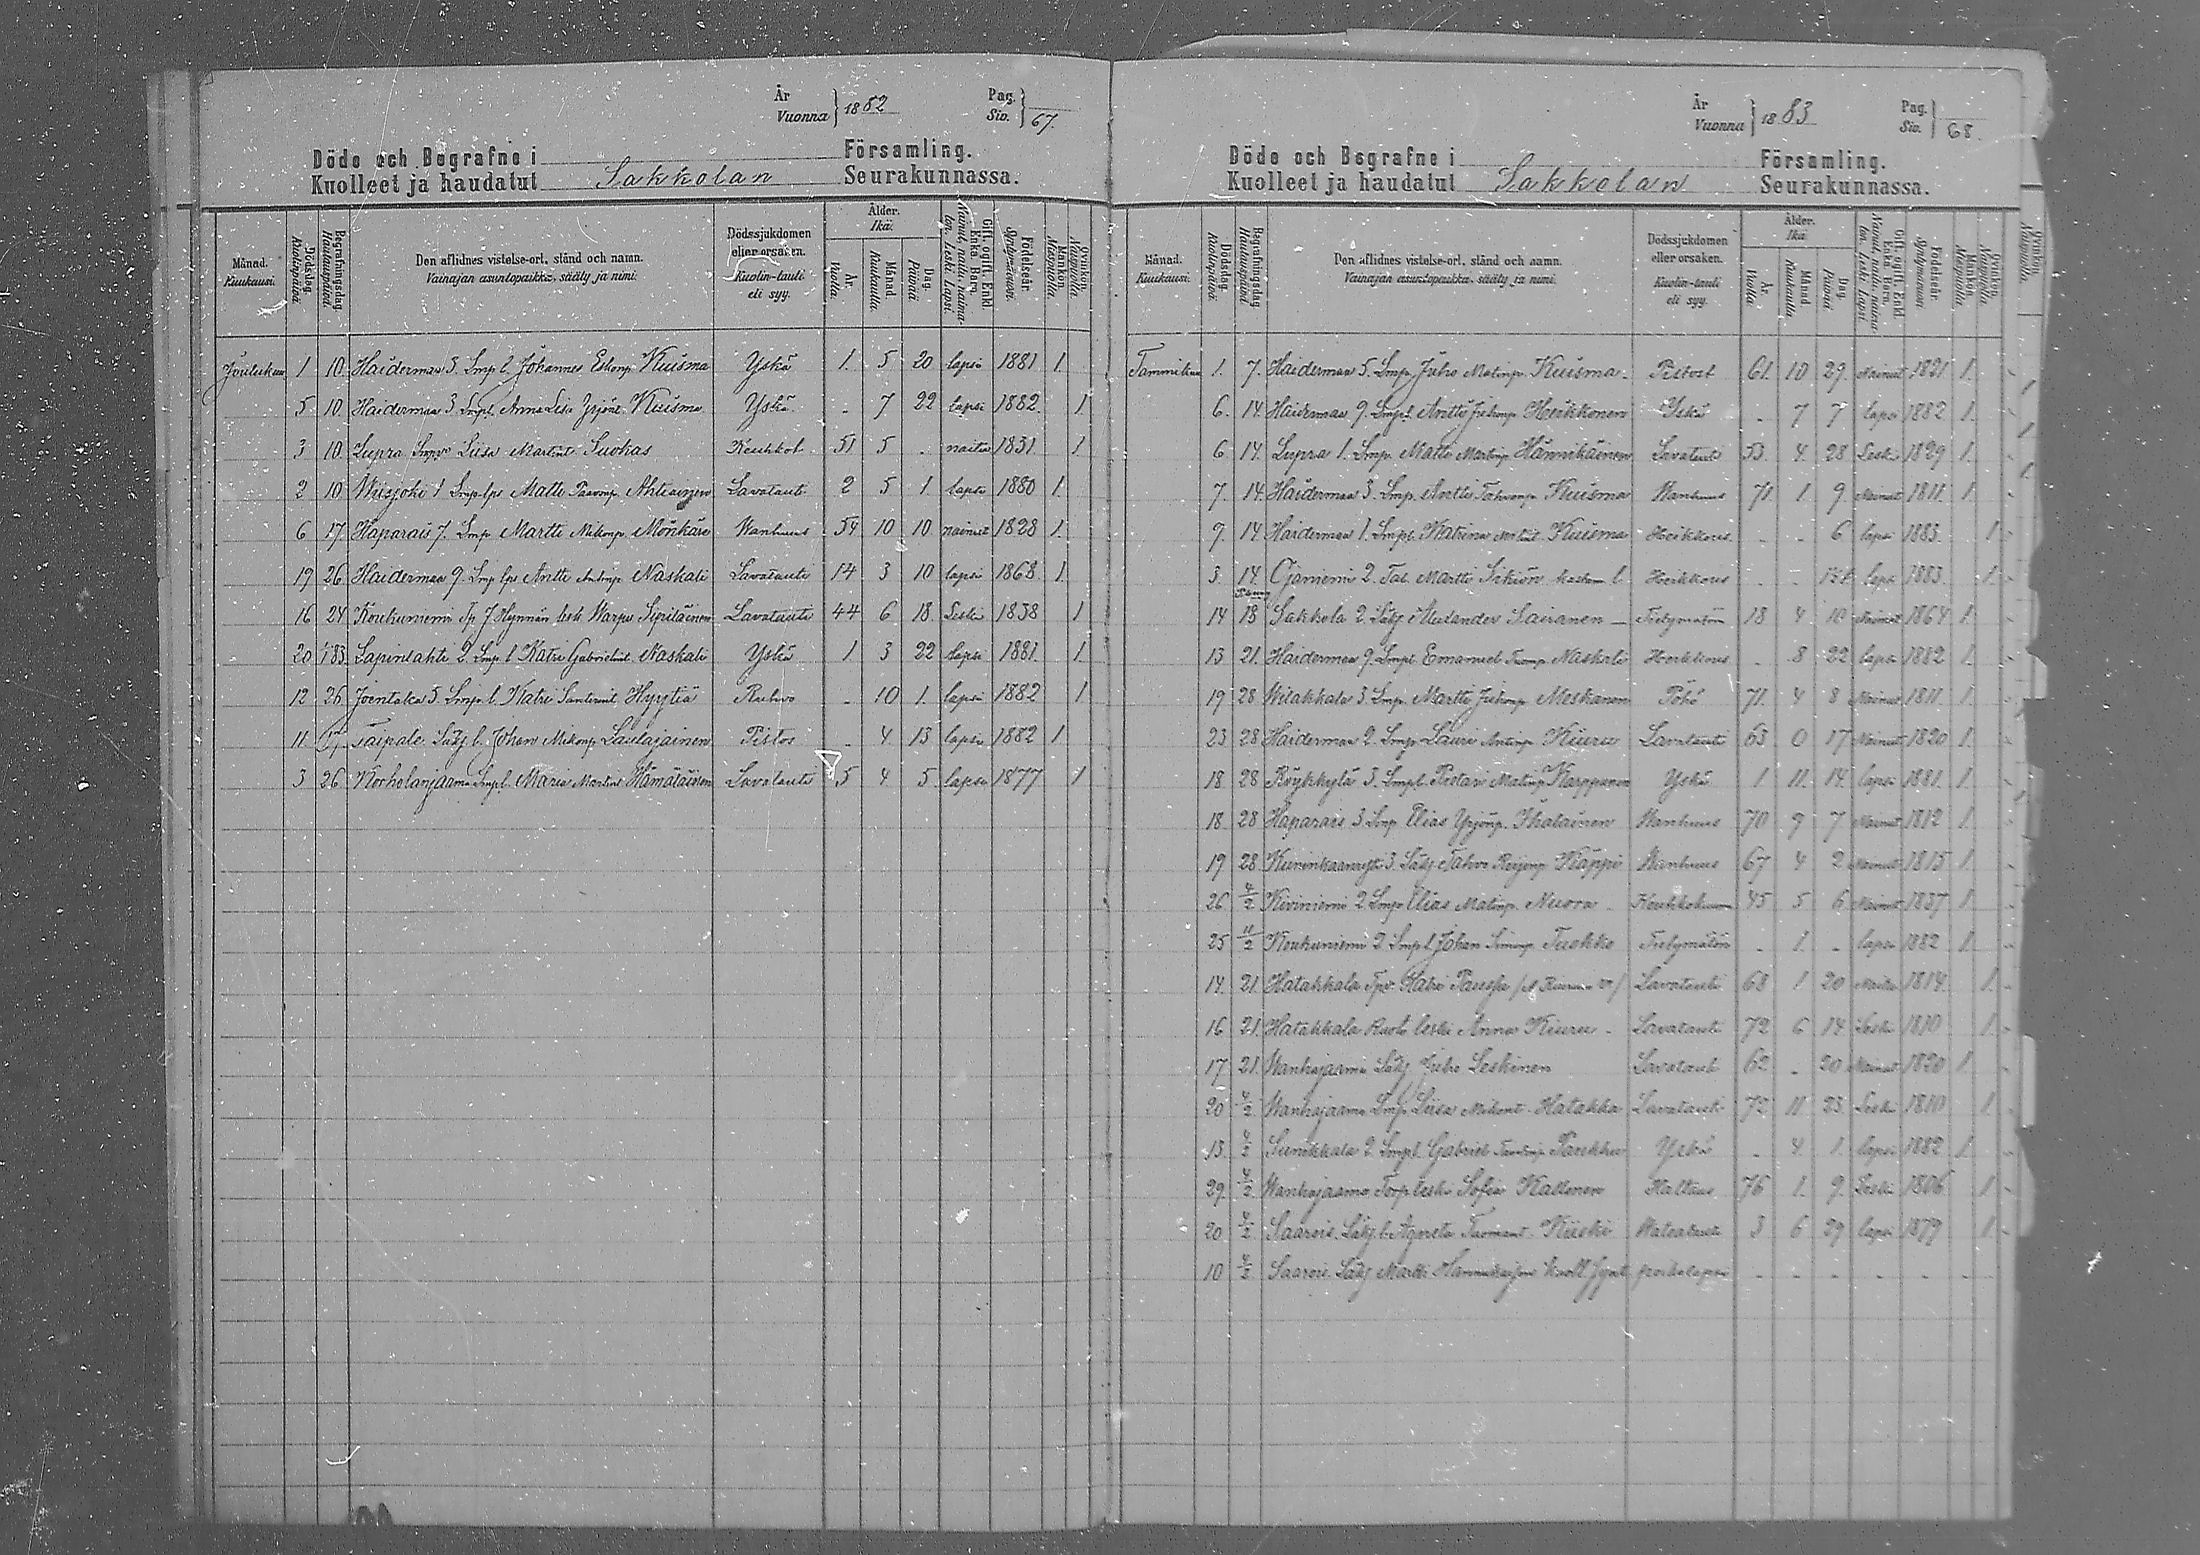 År Vuonna } 1882 Pag. Siv. } 67.
Döde och Begrafne i Församling.
Kuolleet ja haudatut Sakkolan Seurakunnassa.
Månad. Kuukausi. Dödsdag. Kuolinpäivä. Begrafningsdag Hautauspäivä. Den aflidnes vistelse-ort, stånd och namn. Vainajan asuntopaikka, sääty ja nimi. Dödssjukdomen eller orsaken. Kuolin-tauti eli syy. Ålder. Ikä. År. Vuotta Månad. Kuukautta. Dag. Päiviä Gift, ogift, Enkl. Enka, Barn. Födelseår. Syntymävuosi. Mankön. Miespuolia Qvinkön. Naispuolia
Joulukuu 1 10 Haiderman 3. Lmp l. Johannes Eskonp Kuisma Yskä 1. 5 20 lapsi 1881 1.
5. 10. Haiderman 3 Lmpl. Anna Lisa Yrjönt. Kuisma Yskä . 7 22 lapsi 1882. 1.
3 10. Lupra Liisa Martint Suokas Keuhkot. 51 5 . naitu 1831. 1
2 10 Wiisjoki 1 Lmp lps Matti Paavonp Ahtiainen Lavatauti 2 5 1 lapsi 1880 1.
6 17. Haparais 7. Lmp Martti Mikonp Mönkäre Wanhuus 54 10 10 nainut 1828 1.
19 26. Haiderman 9. Lmp lps Antti Antinp Naskali Lavatauti 14 3 10 lapsi 1868. 1.
16 24 Koukuniemi J Hynnän leski Warpu Sipiläinen Lavatauti 44 6 18. Leski 1838 1
20 1/1 83 Lapinlahti 2. Lmp l Katri Gabrielint. Naskali Yskä 1 3 22 lapsi 1881. 1.
12 26 Joentaka 3. Lmp l. Katri Hyytiä Ruhvo . 10 1. lapsi 1882 1
11. Taipale. Lätj l. Johan Mikonp Laulajainen Pistos . 4 13 lapsi 1882 1
3 26 Korholanjaama Lmpl. Maria Martint Hämäläinen Lavatauti 5 4 5. lapsi 1877. 1
År Vuonna } 1883 Pag. Siv. } 68.
Döde och Begrafne i Församling.
Kuolleet ja haudatut Sakkolan Seurakunnassa.
Månad. Kuukausi. Dödsdag. Kuolinpäivä. Begrafningsdag Hautauspäivä Den aflidnes vistelse-ort, stånd och namn. Vainajan asuntopaikka, sääty ja nimi. Dödssjukdomen eller orsaken. Kuolin-tauti eli syy. Ålder. Ikä År. Vuotta Månad. Kuukautta Dag. Päiviä Gift, ogift, Enkl. Enka, Barn. Födelseår. Syntymävuosi. Mankön. Miespuolia Qvinkön. Naispuolia.
Tammikuu 1. 7. Haiderman 5. Lmp. Juho Matinp Kuisma. Pistost 61. 10 29. Nainut 1821 1.
6. 14. Haiderman 9. Lmpl. Antti Juhonp Heikkonen Yskä . 7 7 lapsi 1882 1.
6 14. Lupra 1. Lmp. Matti Martinp Hännikäinen Lavatauti 53. 4. 28 Leski 1829 1.
7. 14. Haiderman 3. Lmp. Antti Tahvonp Kuisma Wanhuus 71. 1. 9. Nainut 1811. 1.
9. 14 Haiderman 1. Lmpl. Katrina Kuisma Heikkous . . 6 lapsi 1883. 1.
3. 14. Ojaniemi 2. Tal. Martti l. Heikkous . . lapsi 1883. 1.
14 Sakkola 2. Lätj. Aleksander Sairanen Tietymätön 18 4 10 Nainut 1864 1.
13 21. Haiderman 9. Lmpl. Emanuel Naskali Heikkous . 8 22 lapsi 1882 1.
19 28 Wilakkala 3. Lmp. Martti Juhonp Meskanen Pöhö 71. 4 8 Nainut 1811. 1.
23 28 Haiderman 2. Lmp. Lauri Antinp Kiuru Lavatauti 63 0 17 Nainut 1820 1.
18 28 Röykkylä 3. Lmpl. Pietari Matinp Karppanen Yskä 1 11. 14. lapsi 1881. 1.
18 28 Haparais 3 Lmp Elias Yrjönp. Ihalainen Wanhuus 70 9 7 Nainut 1812 1.
19 28 Kuninkaanristi 3. Lätj Tahvo Käppi Wanhuus 67 4 2 Nainut 1815 1.
26 4/2 Kiviniemi 2 Lmp Elias Matinp. Nuora Keuhkokuume 45 5 6 Nainut 1837 1
25 11/2 Koukuniemi 2 Lmp l. Johan Simonp. Tuokko Tietymätön . 1. . lapsi 1882 1.
14. 21. Hatakkala Katri Lavatauti 68 1 20 Naitu 1814. 1.
16 21. Hatakkala leski Anna Kiuru Lavatauti 72 6 14. Leski 1810 1.
17 21. Wanhajaama Lätj. Juho Leskinen Lavatauti 62 . 20 Nainut 1820 1
20 4/2 Wanhajaama Lmp. Liisa Mikont. Hatakka Lavatauti 72 11 23. Leski 1810 1
13. 4/2 Sunikkala 2. Lmpl. Gabriel Paukku Yskä . 4. 1. lapsi 1882 1
29. 4/2 Wanhajaama Torp leski Sofia Kallonen Haltaus 76 1. 9. Leski 1806 1
20 4/2 Saarois. Lätj. l. Agneta Tuomant. Kiiski 3 6 29 lapsi 1879 1
10 4/2 Saarois. Lätj Martti poikalapsi . . . . . .